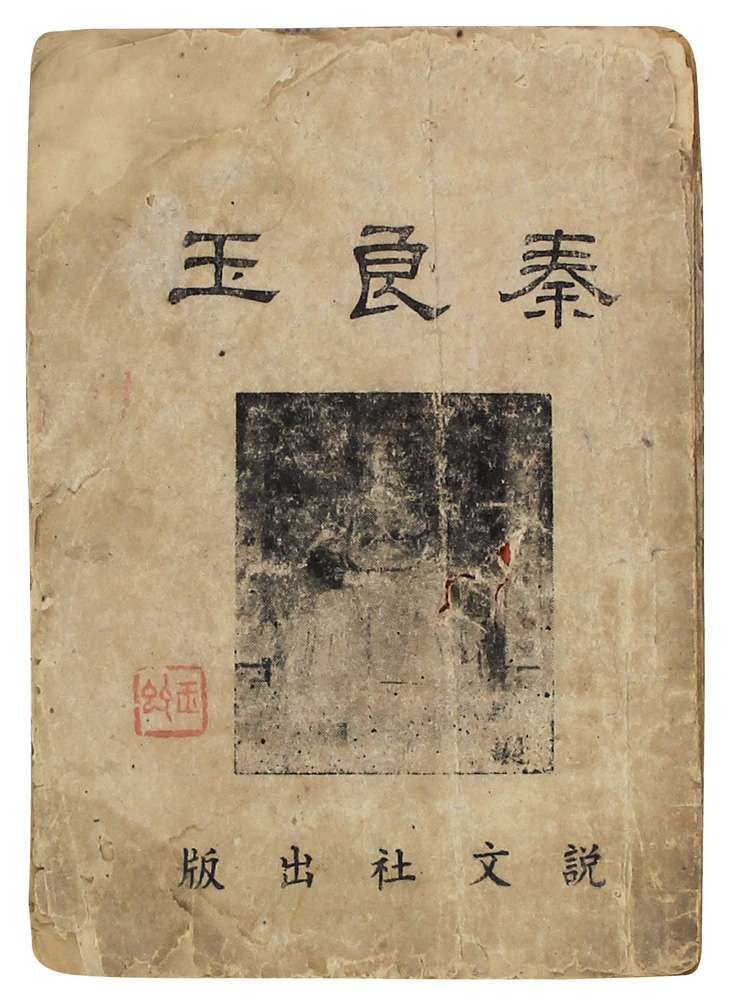 秦良玉
説文社出版